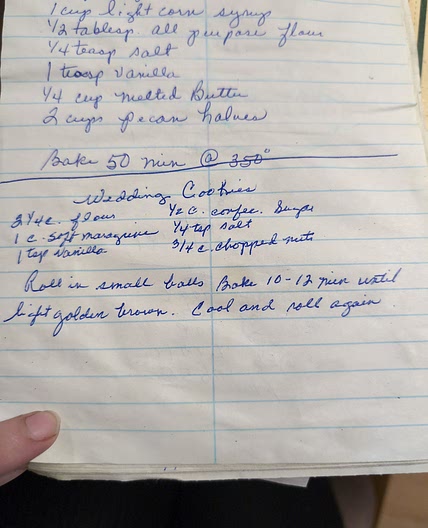 1 cup light corn syrup
1/2 tablesp. all purpose flour
1/4 teasp salt
1 teasp vanilla
1/4 cup melted Butter
2 cups pecan halves
Bake 50 min @ 350°
Wedding Cookies
2 1/4 c. flour 1/2 c. confec. Sugar
1 c. soft margarine 1/4 tsp salt
1 tsp vanilla 3/4 c. chopped nuts
Roll in small balls Bake 10-12 min until
light golden brown. Cool and roll again